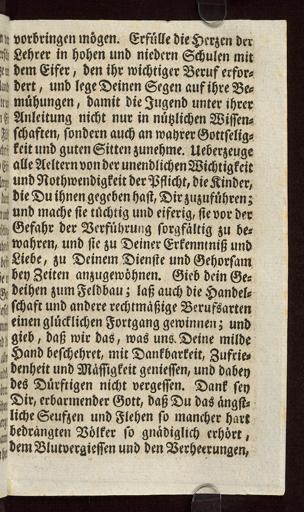 vorbringen mögen. Erfülle die Herzen der
Lehrer in hohen und niedern Schulen mit
dem Eifer, den ihr wichtiger Beruf erfor-
dert, und lege Deinen Segen auf ihre Be-
mühungen, damit die Jugend unter ihrer
Anleitung nicht nur in nützlichen Wissen-
schaften, sondern auch an wahrer Gottselig-
keit und guten Sitten zunehme. Ueberzeuge
alle Aeltern von der unendlichen Wichtigkeit
und Nothwendigkeit der Pflicht, die Kinder,
die Du ihnen gegeben hast, Dir zuzuführen;
und mache sie tüchtig und eiferig, sie vor der
Gefahr der Verführung sorgfältig zu be-
wahren, und sie zu Deiner Erkenntniß und
Liebe, zu Deinem Dienste und Gehorsam
bey Zeiten anzugewöhnen. Gieb dein Ge-
deihen zum Feldbau; laß auch die Handel-
schaft und andere rechtmäßige Berufsarten
einen glücklichen Fortgang gewinnen; und
gieb, daß wir das, was uns Deine milde
Hand beschehret, mit Dankbarkeit, Zufrie-
denheit und Mässigkeit geniessen, und dabey
des Dürftigen nicht vergessen. Dank sey
Dir, erbarmender Gott, daß Du das ängst-
liche Seufzen und Flehen so mancher hart
bedrängten Völker so gnädiglich erhört,
dem Blutvergiessen und den Verheerungen,